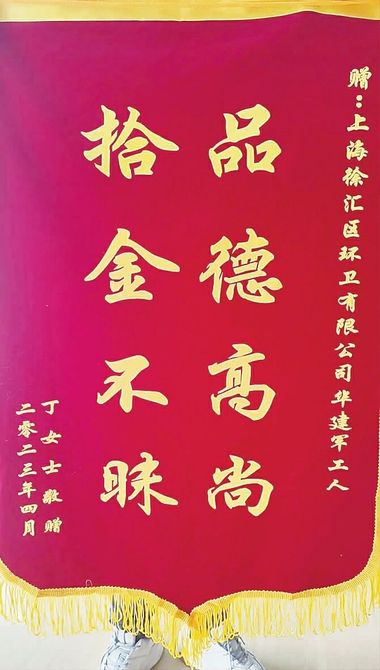 赠：上海徐汇区环卫有限公司华建军工人
品德高尚
拾金不昧
丁女士敬赠
二零二三年四月